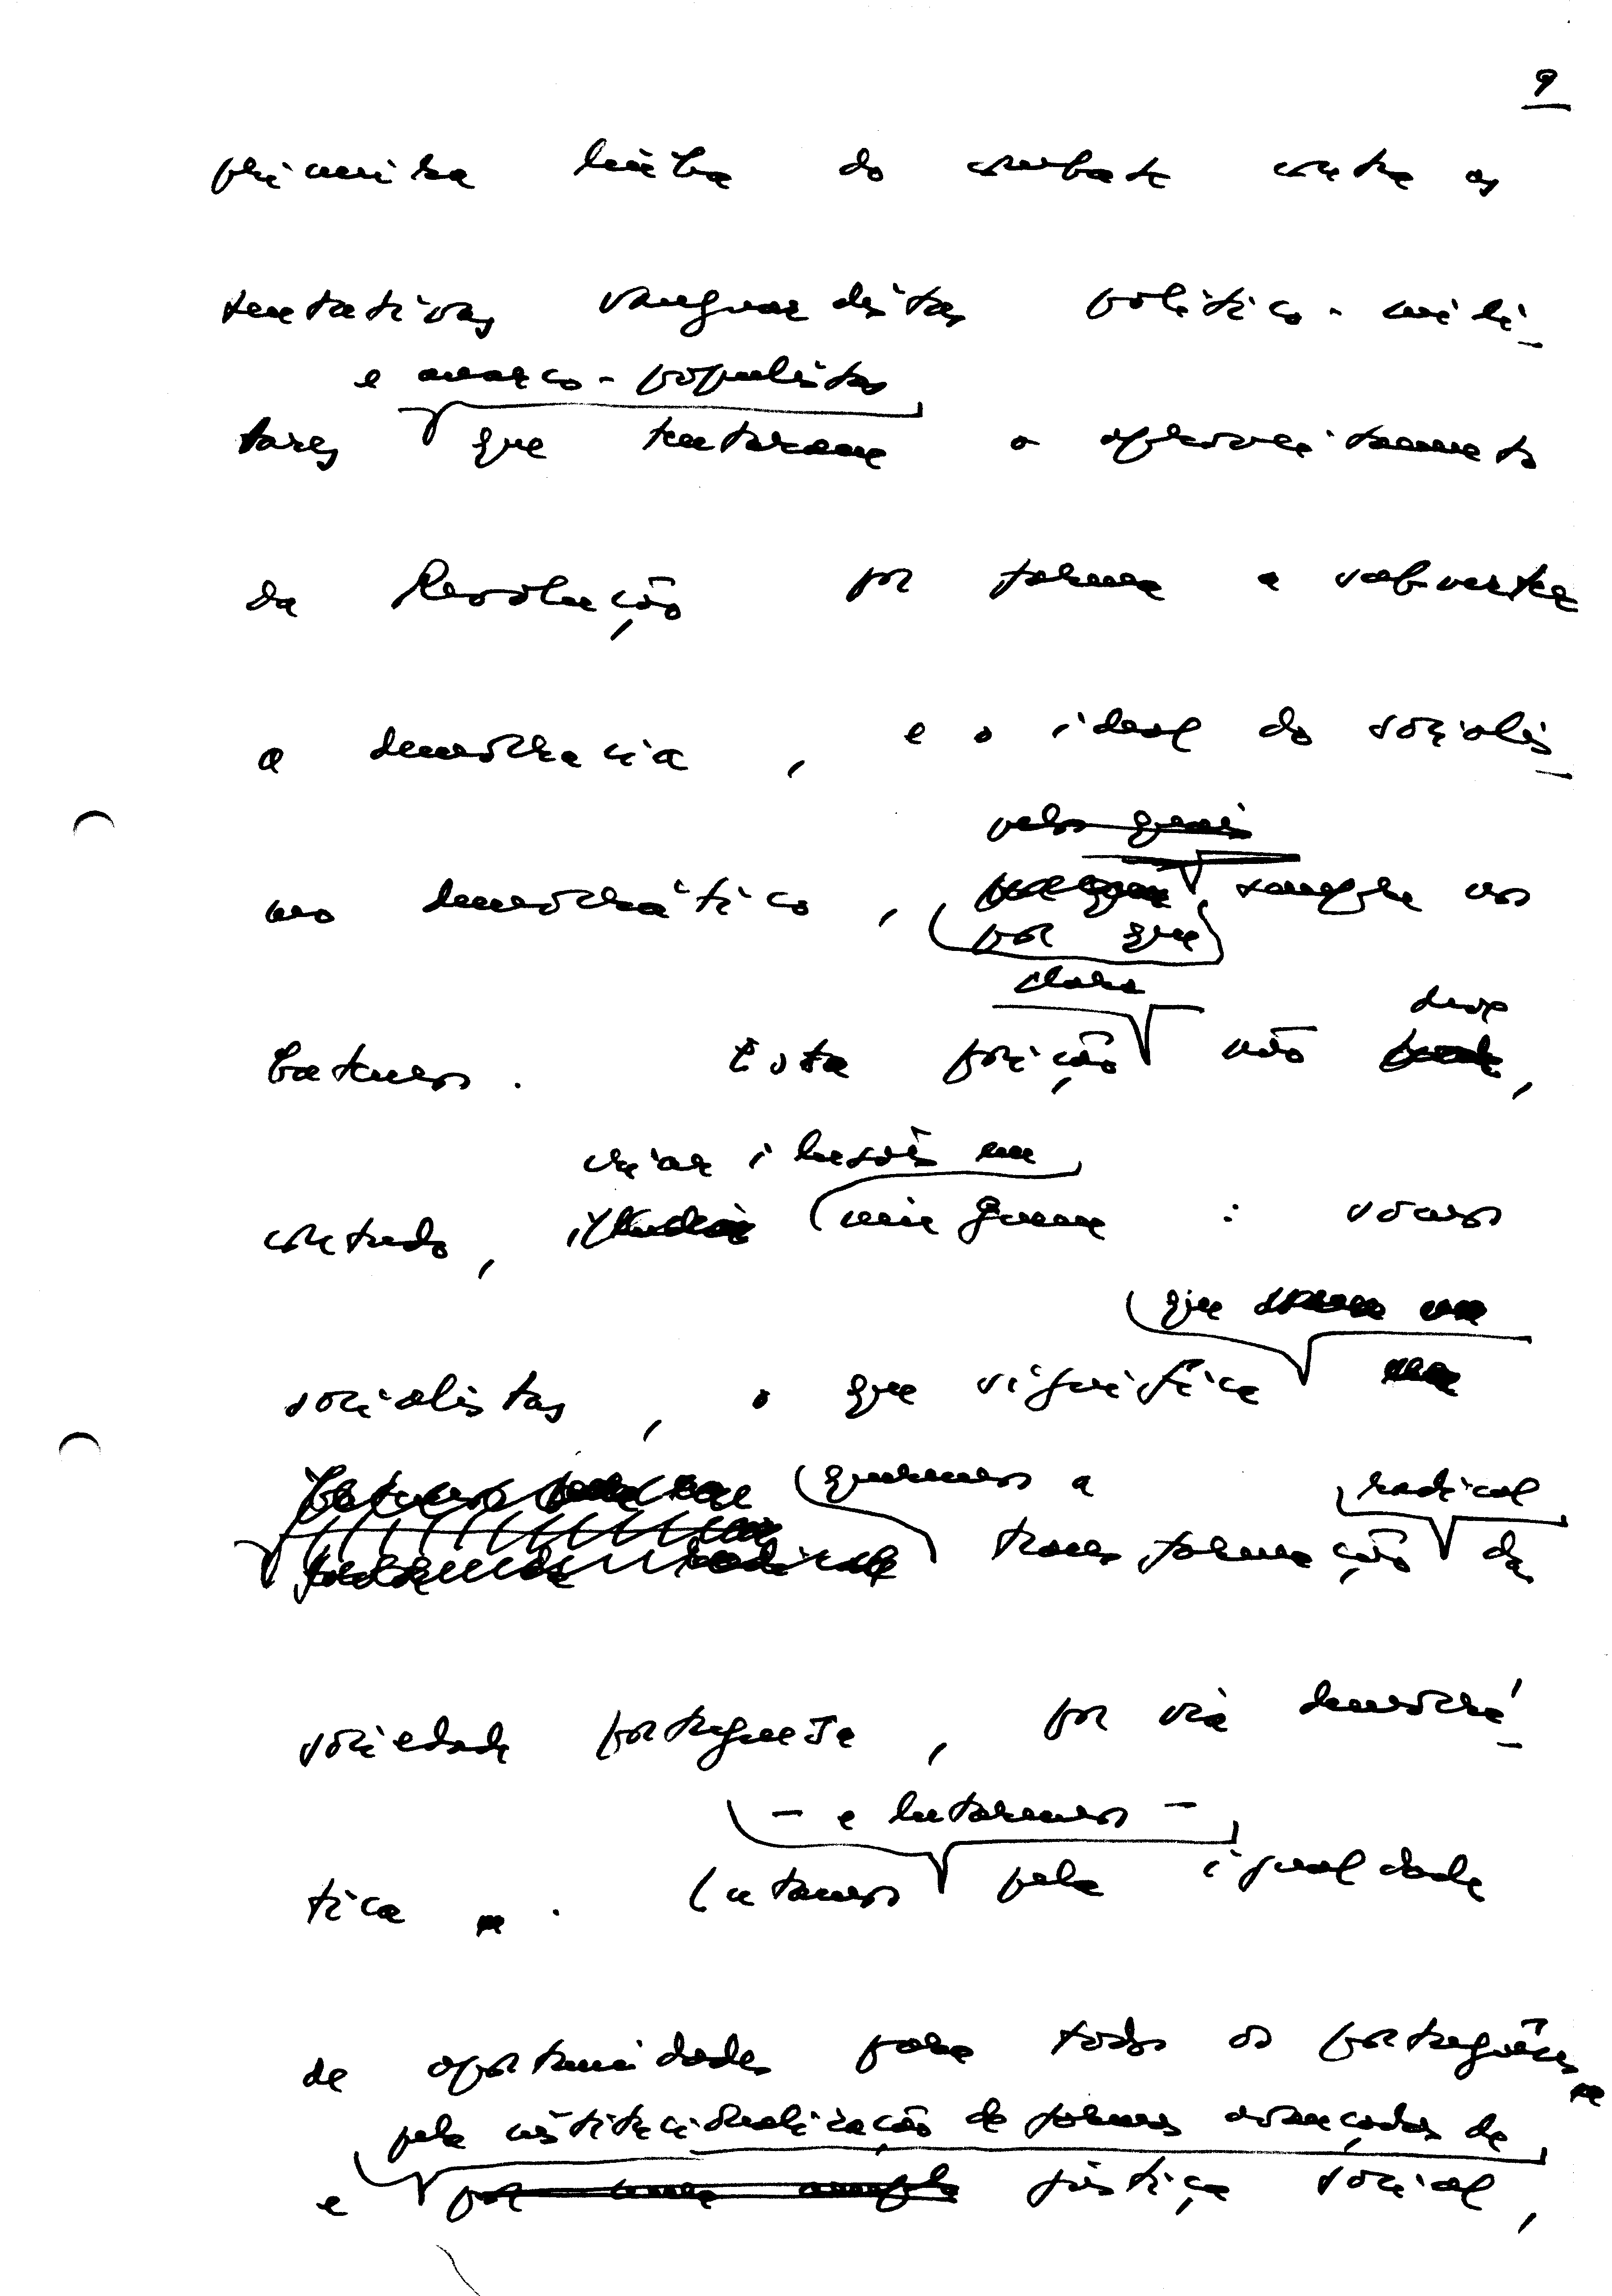 9
primeira linha do combate contra as
tentativas vanguardistas político-mili-
e anarco-populistas
tares que tentaram o aproveitamento
da Revolução por forma a subverter
a democracia, e o ideal do socialis-
pelos quais
mo democrático, sempre nos
por que
clara deve
batemos. Esta posição não,
criar ilusões em
contudo, ninguém: somos
que
socialistas, o que significa
queremos a radical
transformação da
sociedade portuguesa, por via democrá-
- e lutaremos -
tica. Lutamos pela igualdade
de oportunidades para todos os portugueses
pela institucionalização de formas avançadas de
e por uma ampla justiça social,